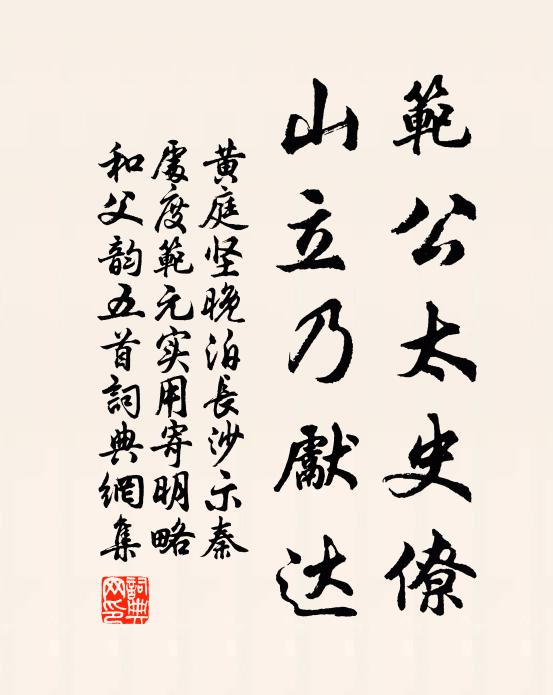 範公太史僚
山立乃獻达
黄庭坚晚泊長沙示秦
處度範元实用寄明略
和父韵五首詞典網集